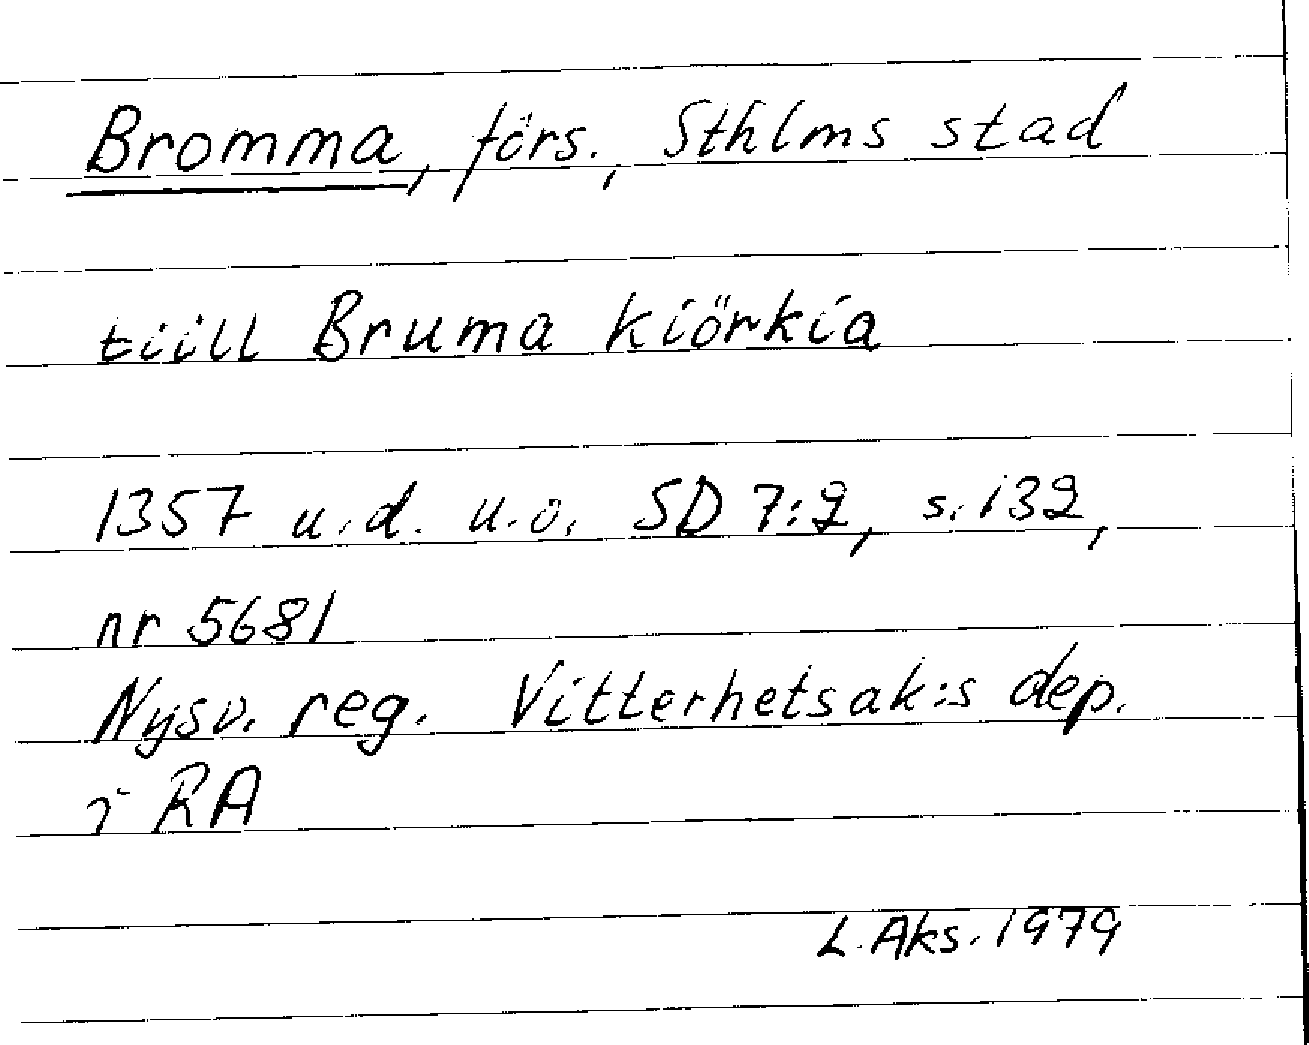 Bromma, förs., Sthlms stad
tiill Bruma kiörkia
1357 u.d. u.o. SD 7:2, s. 132,
nr 5681
Nysv. reg. Vitterhetsak:s dep.
i RA
L. Aks. 1979